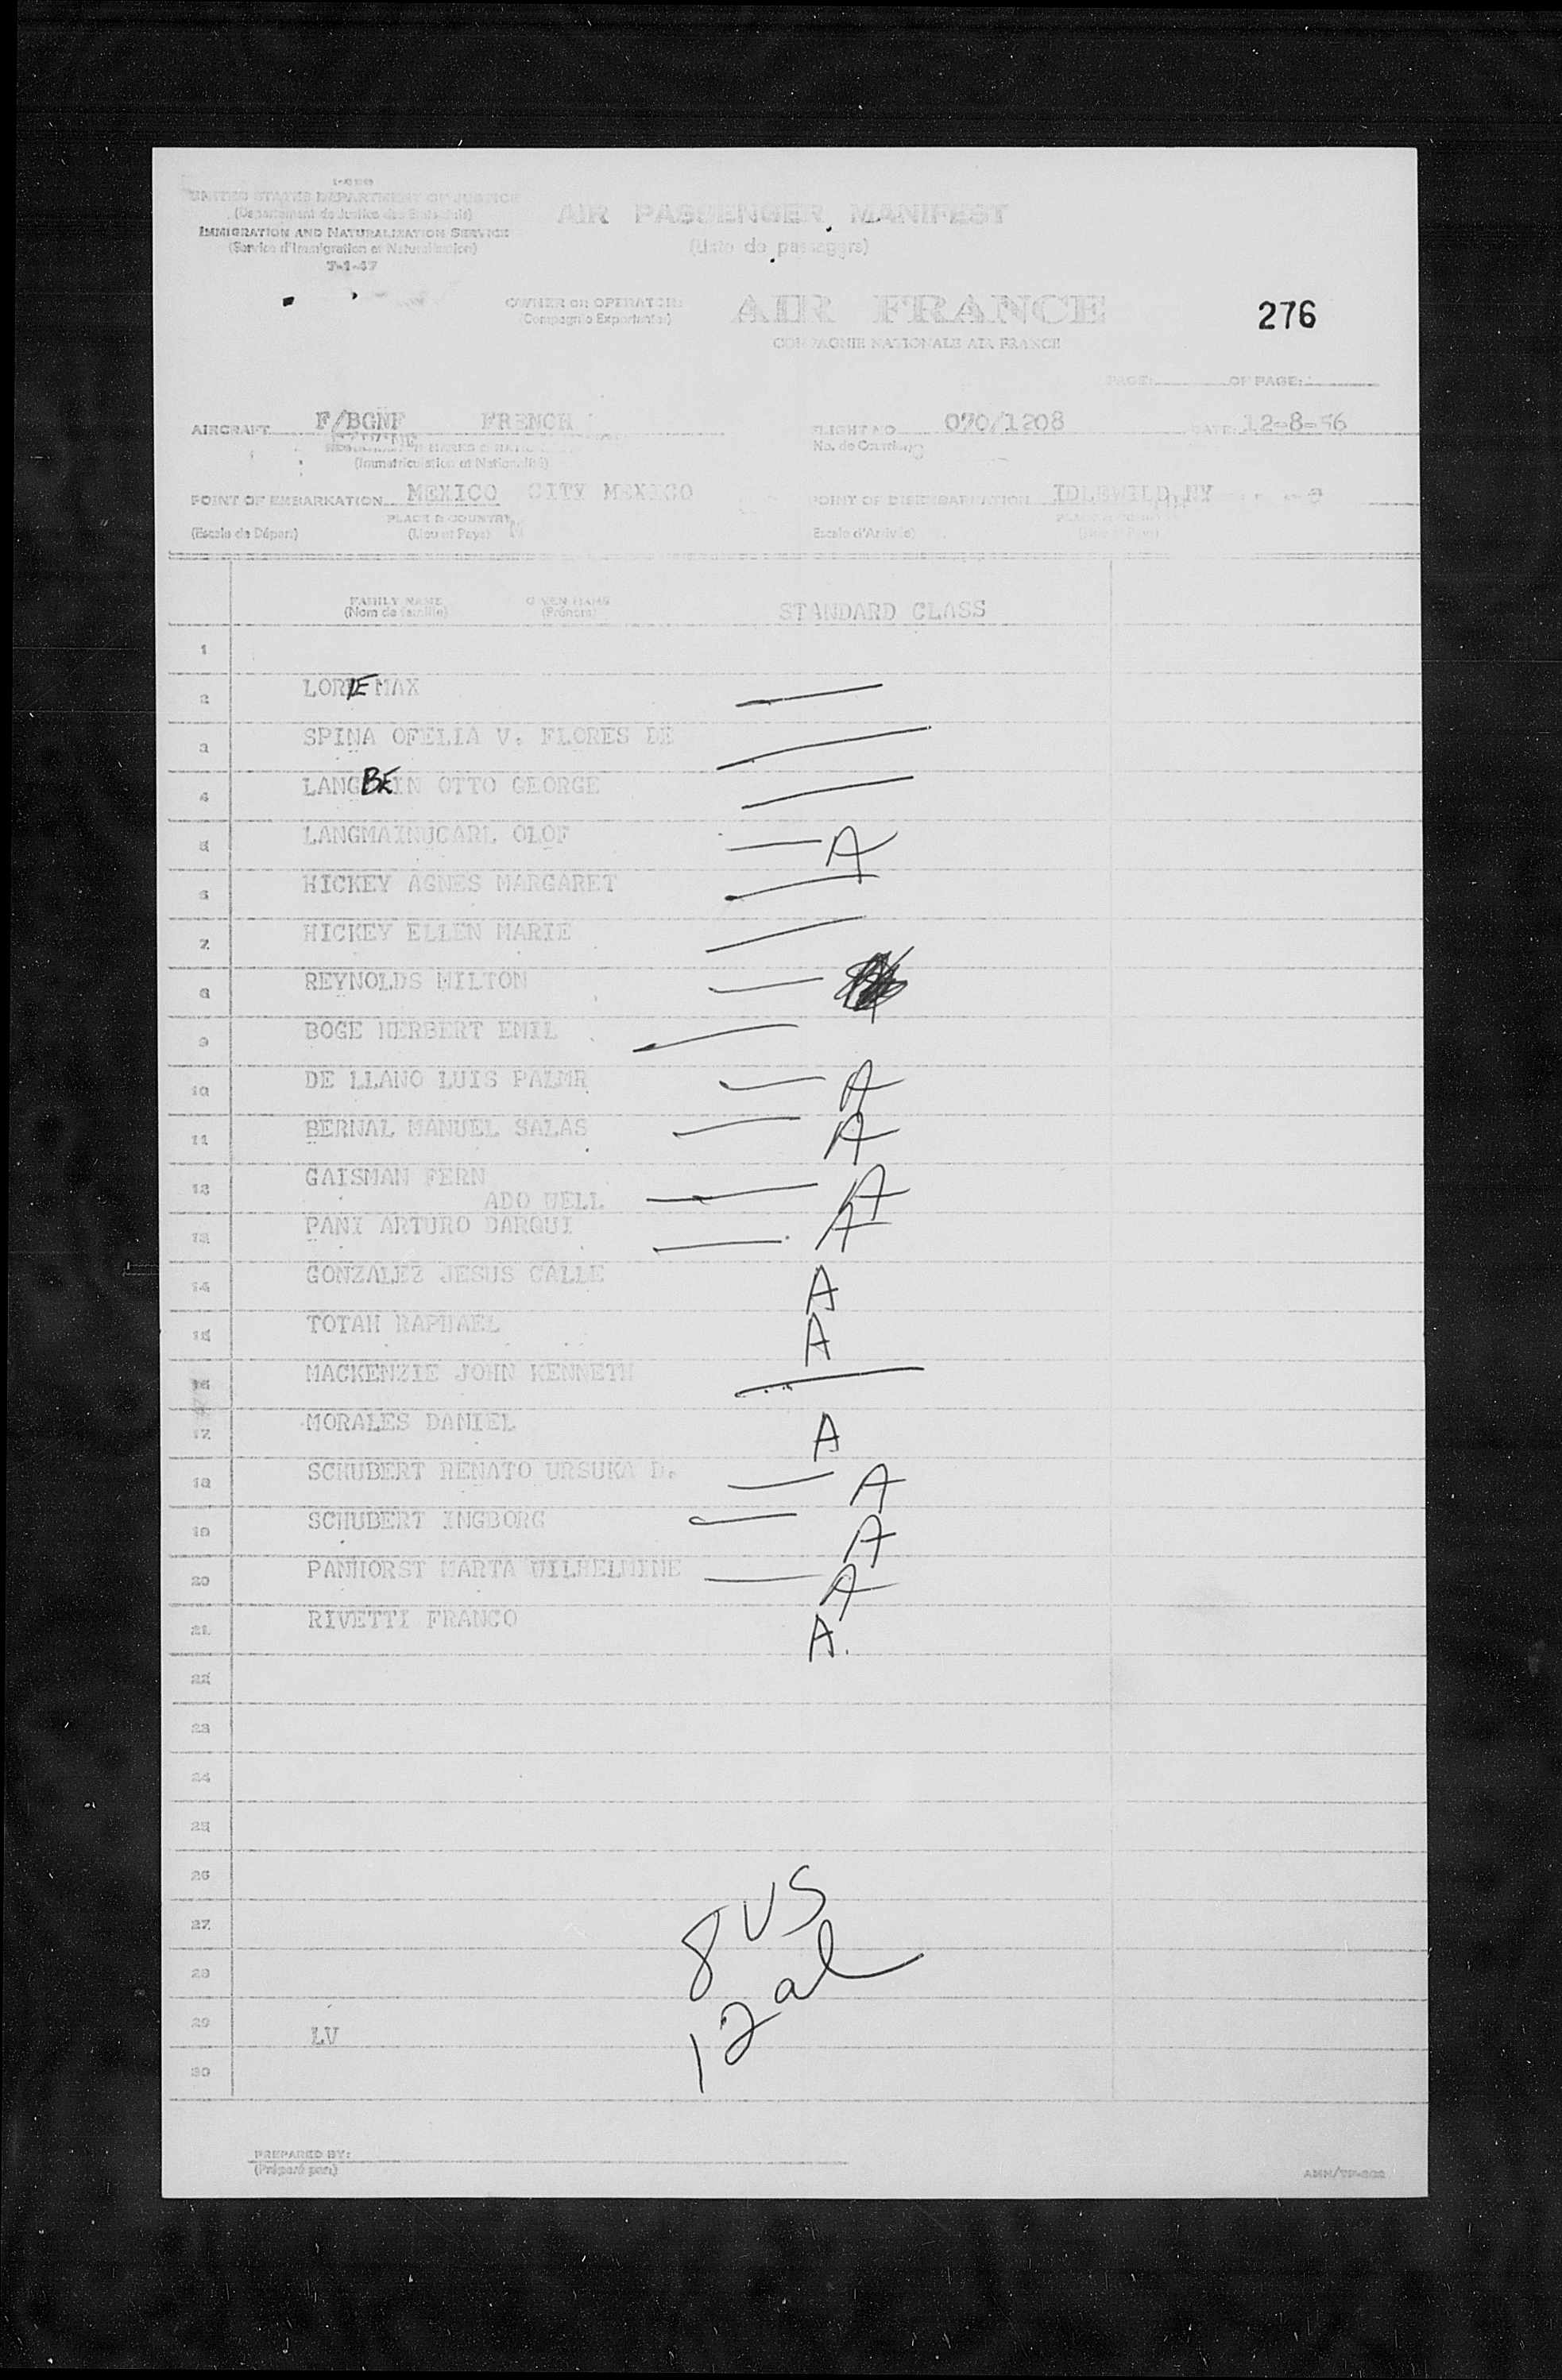 I-466
UNITED STATES DEPARTMENT OF JUSTICE
(Departement de Justice des Etats-Unis)
IMMIGRATION AND NATURALIZATION SERVICE
(Service d'Immigration et Naturalisation)
7-1-47
AIR PASSENGER MANIFEST
(Liste de passagers)
OWNER OR OPERATOR:
(Compagnie Exportante)
AIR FRANCE
COMPAGNIE NATIONALE AIR FRANCE
276
PAGE: OF PAGE:
AIRCRAFT F/BGNF FRENCH
(Immatriculation et Nationalité)
FLIGHT NO 070/1208 DATE: 12-8-56
No. de Courrier
POINT OF EMBARKATION MEXICO CITY MEXICO
PLACE & COUNTRY
(Escale de Départ) (Lieu et Pays)
POINT OF DISEMBARKATION IDLEWILD, NY
Escale d'Arrivée) (Lieu et Pays)
FAMILY NAME GIVEN NAME
(Nom de famille) (Prénoms)
STANDARD CLASS
1
2 LORIE MAX
3 SPINA OFELIA V. FLORES DE
4 LANGBEIN OTTO GEORGE
5 LANGMAINUCARL OLOF A
6 HICKEY AGNES MARGARET
7 HICKEY ELLEN MARIE
8 REYNOLDS MILTON
9 BOGE HERBERT EMIL
10 DE LLANO LUIS PALMR A
11 BERNAL MANUEL SALAS A
12 GAISMAN FERN
ADO WELL A
13 PANI ARTURO DARQUI A
14 GONZALEZ JESUS CALLE A
15 TOTAH RAPHAEL A
16 MACKENZIE JOHN KENNETH
17 MORALES DANIEL A
18 SCHUBERT RENATO URSUKA D. A
19 SCHUBERT INGBORG A
20 PANHORST MARTA WILHELMINE A
21 RIVETTI FRANCO A.
22
23
24
25
26
27 8 US
28
29 LV 12 al
30
PREPARED BY:
(Préparé par:)